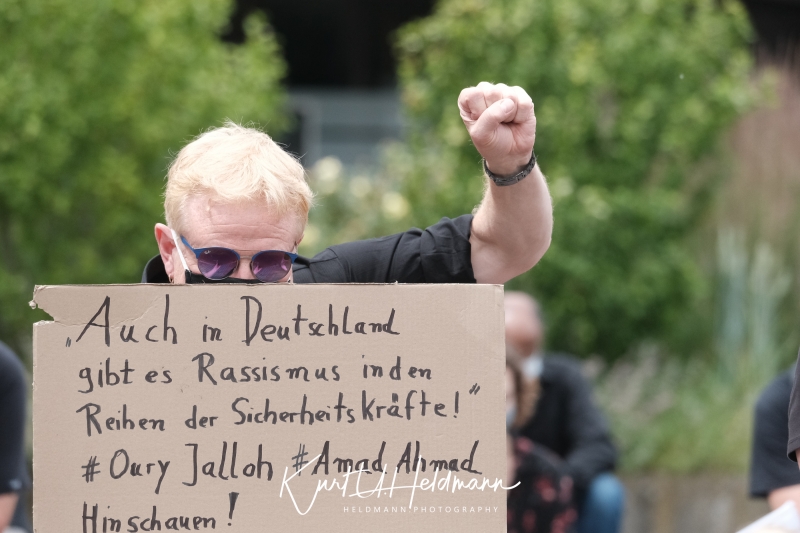 „Auch in Deutschland
gibt es Rassismus in den
Reihen der Sicherheitskräfte!"
#Oury Jalloh #Amad Ahmad
Hinschauen!
Kurt U. Heldmann
HELDMANN PHOTOGRAPHY